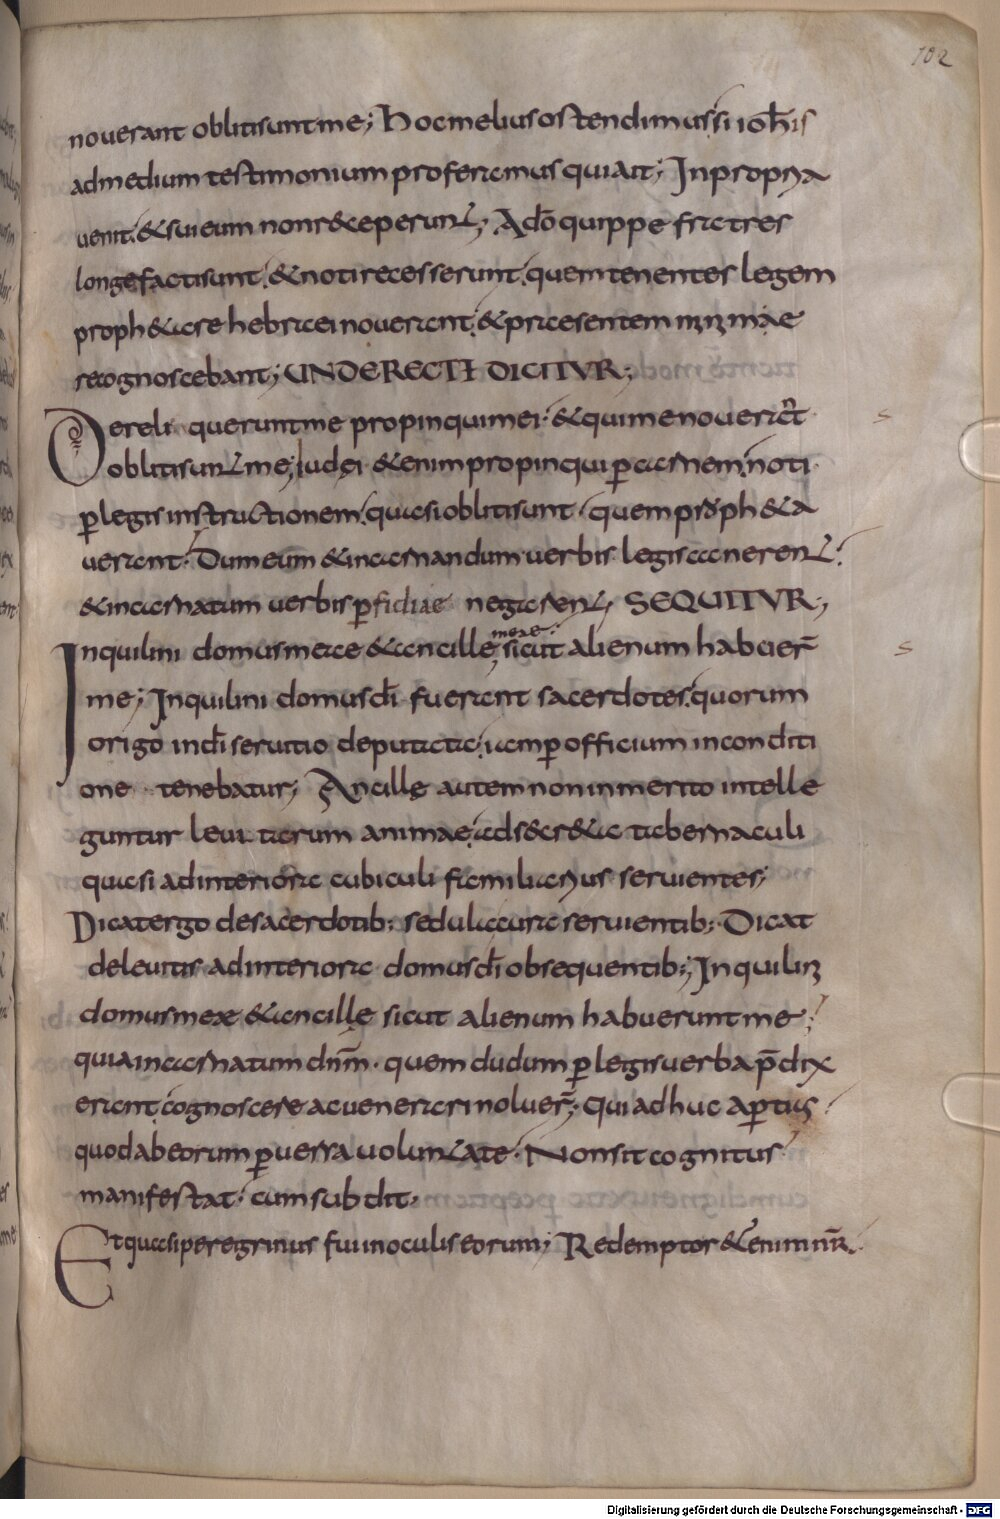 102
nouerant oblitisuntme; Hocmelius ostendimus si ioh̄is
admedium testimonium proferamus quiait; Inpropria
uenit. & sui eum nonr&eperunt; Ad̄o quippe fratres
longe facti sunt. & noti recesserunt. quem tenentes legem
proph&ae hebraei nouerant. & praesentem minime
recognoscebant; UNDE RECTE DICITUR;
Dereli queruntme propinquimei. & quimenouerant
oblitisunt me; Iudęi &enim propinqui p̱carnem noti
p̱legis instructionem. quasi oblitisunt. quem proph&a
uerant. Dum eum & incarnandum uerbis legis canerent.
& incarnatum uerbis p̱fidiae negarent; SEQUITUR;
Inquilini domusmeae & ancillę meae. sicut alienum habuer̄
me; Inquilini domusdi fuerant sacerdotes. quorum
origo indi seruitio deputata. iam p̱officium in conditi
one tenebatur; Ancillę autem non inmerito intelle
guntur leui tarum animae. ad secr&a tabernaculi
quasi adinteriora cubiculi familiarius seruientes;
Dicatergo desacerdotib; sedula cura seruientib; Dicat
deleuitis adinteriora domusdi obsequentib; Inquilini
domusmeae & ancillę sicut alienum habueruntme;
quiaincarnatum dnm̄. quem dudum p̱legis uerba p̄dix
erant. cognoscere ac uenerari noluer̄; qui adhuc ap̱tius
quodabeorum p̱uersa uoluntate. Nonsit cognitus
manifestat. cum subdit.
Etquasiperegrinus fui inoculis eorum; Redemptor &enim nr̄.
Digitalisierung gefördert durch die Deutsche Forschungsgemeinschaft - DFG